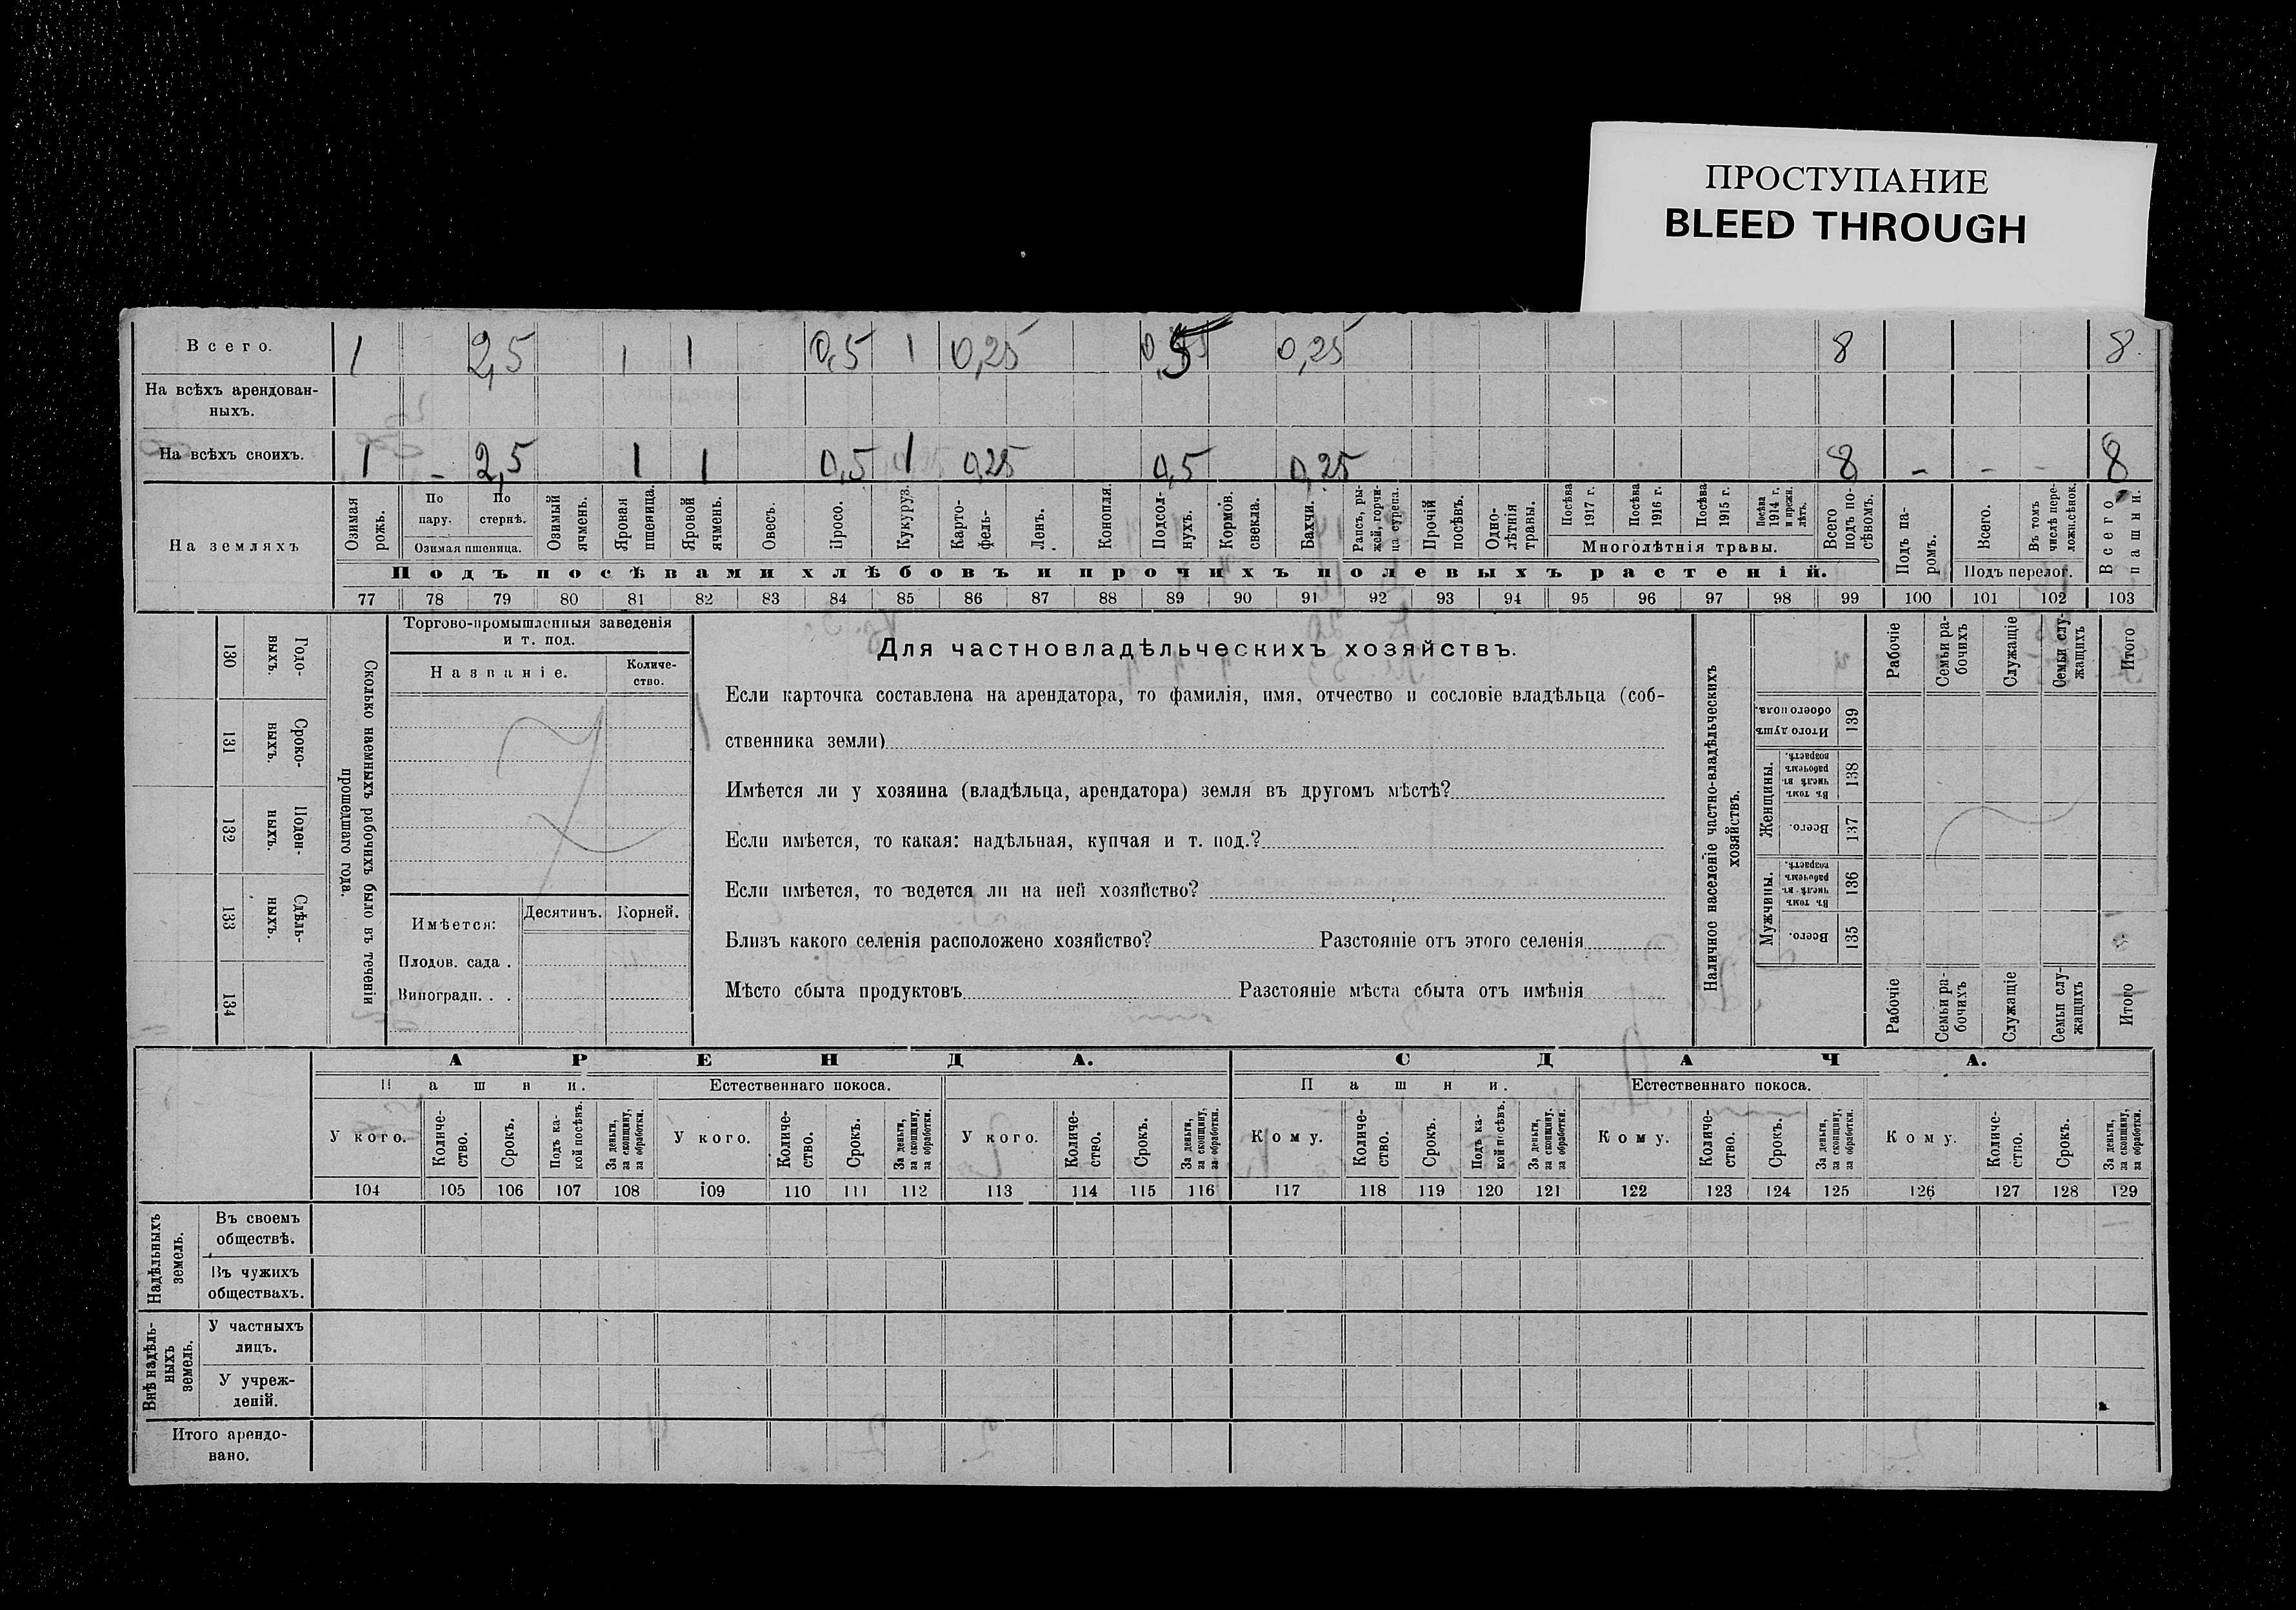 ПРОСТУПАНИЕ
BLEED THROUGH
Всего. 1 2,5 1 1 0,5 1 0,25 0,5 0,25 8 8
На всѣхъ арендован-
ныхъ.
На всѣхъ своихъ. 1 - 2,5 1 1 0,5 1 0,25 0,5 0,25 8 - - - 8
На земляхъ
Озимая рожь.
По пару.
По стернѣ.
Озимая пшеница.
Озимый ячмень.
Яровая пшеница.
Яровой ячмень.
Овесъ.
Просо.
Кукуруз.
Карто-
фель-
Ленъ.
Конопля.
Подсол-
нухъ.
Кормов.
свекла.
Бахчи.
Рапсъ, ры-
жей, горчи-
ца сурепа.
Прочій
посѣвъ.
Одно-
лѣтнія
травы.
Посѣва
1917 г.
Посѣва
1916 г.
Посѣва
1915 г.
Посѣва
1914 г.
и прежн.
лѣтъ.
Многолѣтнія травы.
Всего
подъ по-
сѣвомъ.
Подъ па-
ромъ.
Всего.
Въ томъ
числѣ пере-
ложн.сѣнок.
Подъ перелог.
Всего
пашни.
Подъ посѣвами хлѣбовъ и прочихъ полевыхъ растеній.
77 78 79 80 81 82 83 84 85 86 87 88 89 90 91 92 93 94 95 96 97 98 99 100 101 102 103
Годо-
выхъ.
130
Сроко-
ныхъ.
131
Поден-
ныхъ.
132
Сдѣль-
ныхъ.
133
134
Сколько наемныхъ рабочихъ было въ теченіи
прошедшаго года.
Торгово-промышленныя заведенія
и т. под.
Названіе.
Количе-
ство.
Имѣется:
Десятинъ. Корней.
Плодов. сада .
Виноградн. . .
Для частновладѣльческихъ хозяйствъ.
Если карточка составлена на арендатора, то фамилія, имя, отчество и сословіе владѣльца (соб-
ственника земли)
Имѣется ли у хозяина (владѣльца, арендатора) земля въ другомъ мѣстѣ?
Если имѣется, то какая: надѣльная, купчая и т. под.?
Если имѣется, то ведется ли на ней хозяйство?
Близъ какого селенія расположено хозяйство? Разстояніе отъ этого селенія
Мѣсто сбыта продуктовъ Разстояніе мѣста сбыта отъ имѣнія
Наличное населеніе частно-владѣльческихъ
хозяйствъ.
Рабочіе
Семьи ра-
бочихъ
Служащіе
Семьи слу-
жащихъ
Итого
Итого душъ
обоего пола.
139
Женщины.
Въ томъ
числѣ въ
рабочемъ
возрастѣ.
138
Всего.
137
Мужчины.
Въ томъ
числѣ въ
рабочемъ
возрастѣ.
136
Всего.
135
Рабочіе
Семьи ра-
бочихъ
Служащіе
Семьи слу-
жащихъ
Итого
АРЕНДА. СДАЧА.
Пашни. Естественнаго покоса. Пашни. Естественнаго покоса.
У кого.
Количе-
ство.
Срокъ.
Подъ ка-
кой посѣвъ.
За деньги,
за скопщину,
за обработки.
У кого.
Количе-
ство.
Срокъ.
За деньги,
за скопщину,
за обработки.
У кого.
Количе-
ство.
Срокъ.
За деньги,
за скопщину,
за обработки.
Кому.
Количе-
ство.
Срокъ.
Подъ ка-
кой посѣвъ.
За деньги,
за скопщину,
за обработки.
Кому.
Количе-
ство.
Срокъ.
За деньги,
за скопщину,
за обработки.
Кому.
Количе-
ство.
Срокъ.
За деньги,
за скопщину,
за обработки.
104 105 106 107 108 109 110 111 112 113 114 115 116 117 118 119 120 121 122 123 124 125 126 127 128 129
Надѣльныхъ
земель.
Въ своемъ
обществѣ.
Въ чужихъ
обществахъ.
Внѣ надѣль-
ныхъ
земель.
У частныхъ
лицъ.
У учреж-
деній.
Итого арендо-
вано.